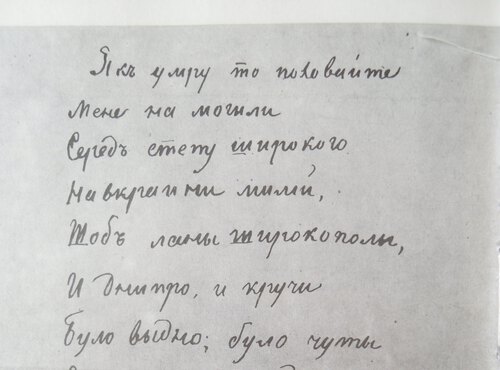 Якъ умру то поховайте
Мене на могили
Середъ степу широкого
На вкраини мили́,
Щобъ ланы широкополы,
И Днипро, и кручи
Було выдно; було чуты